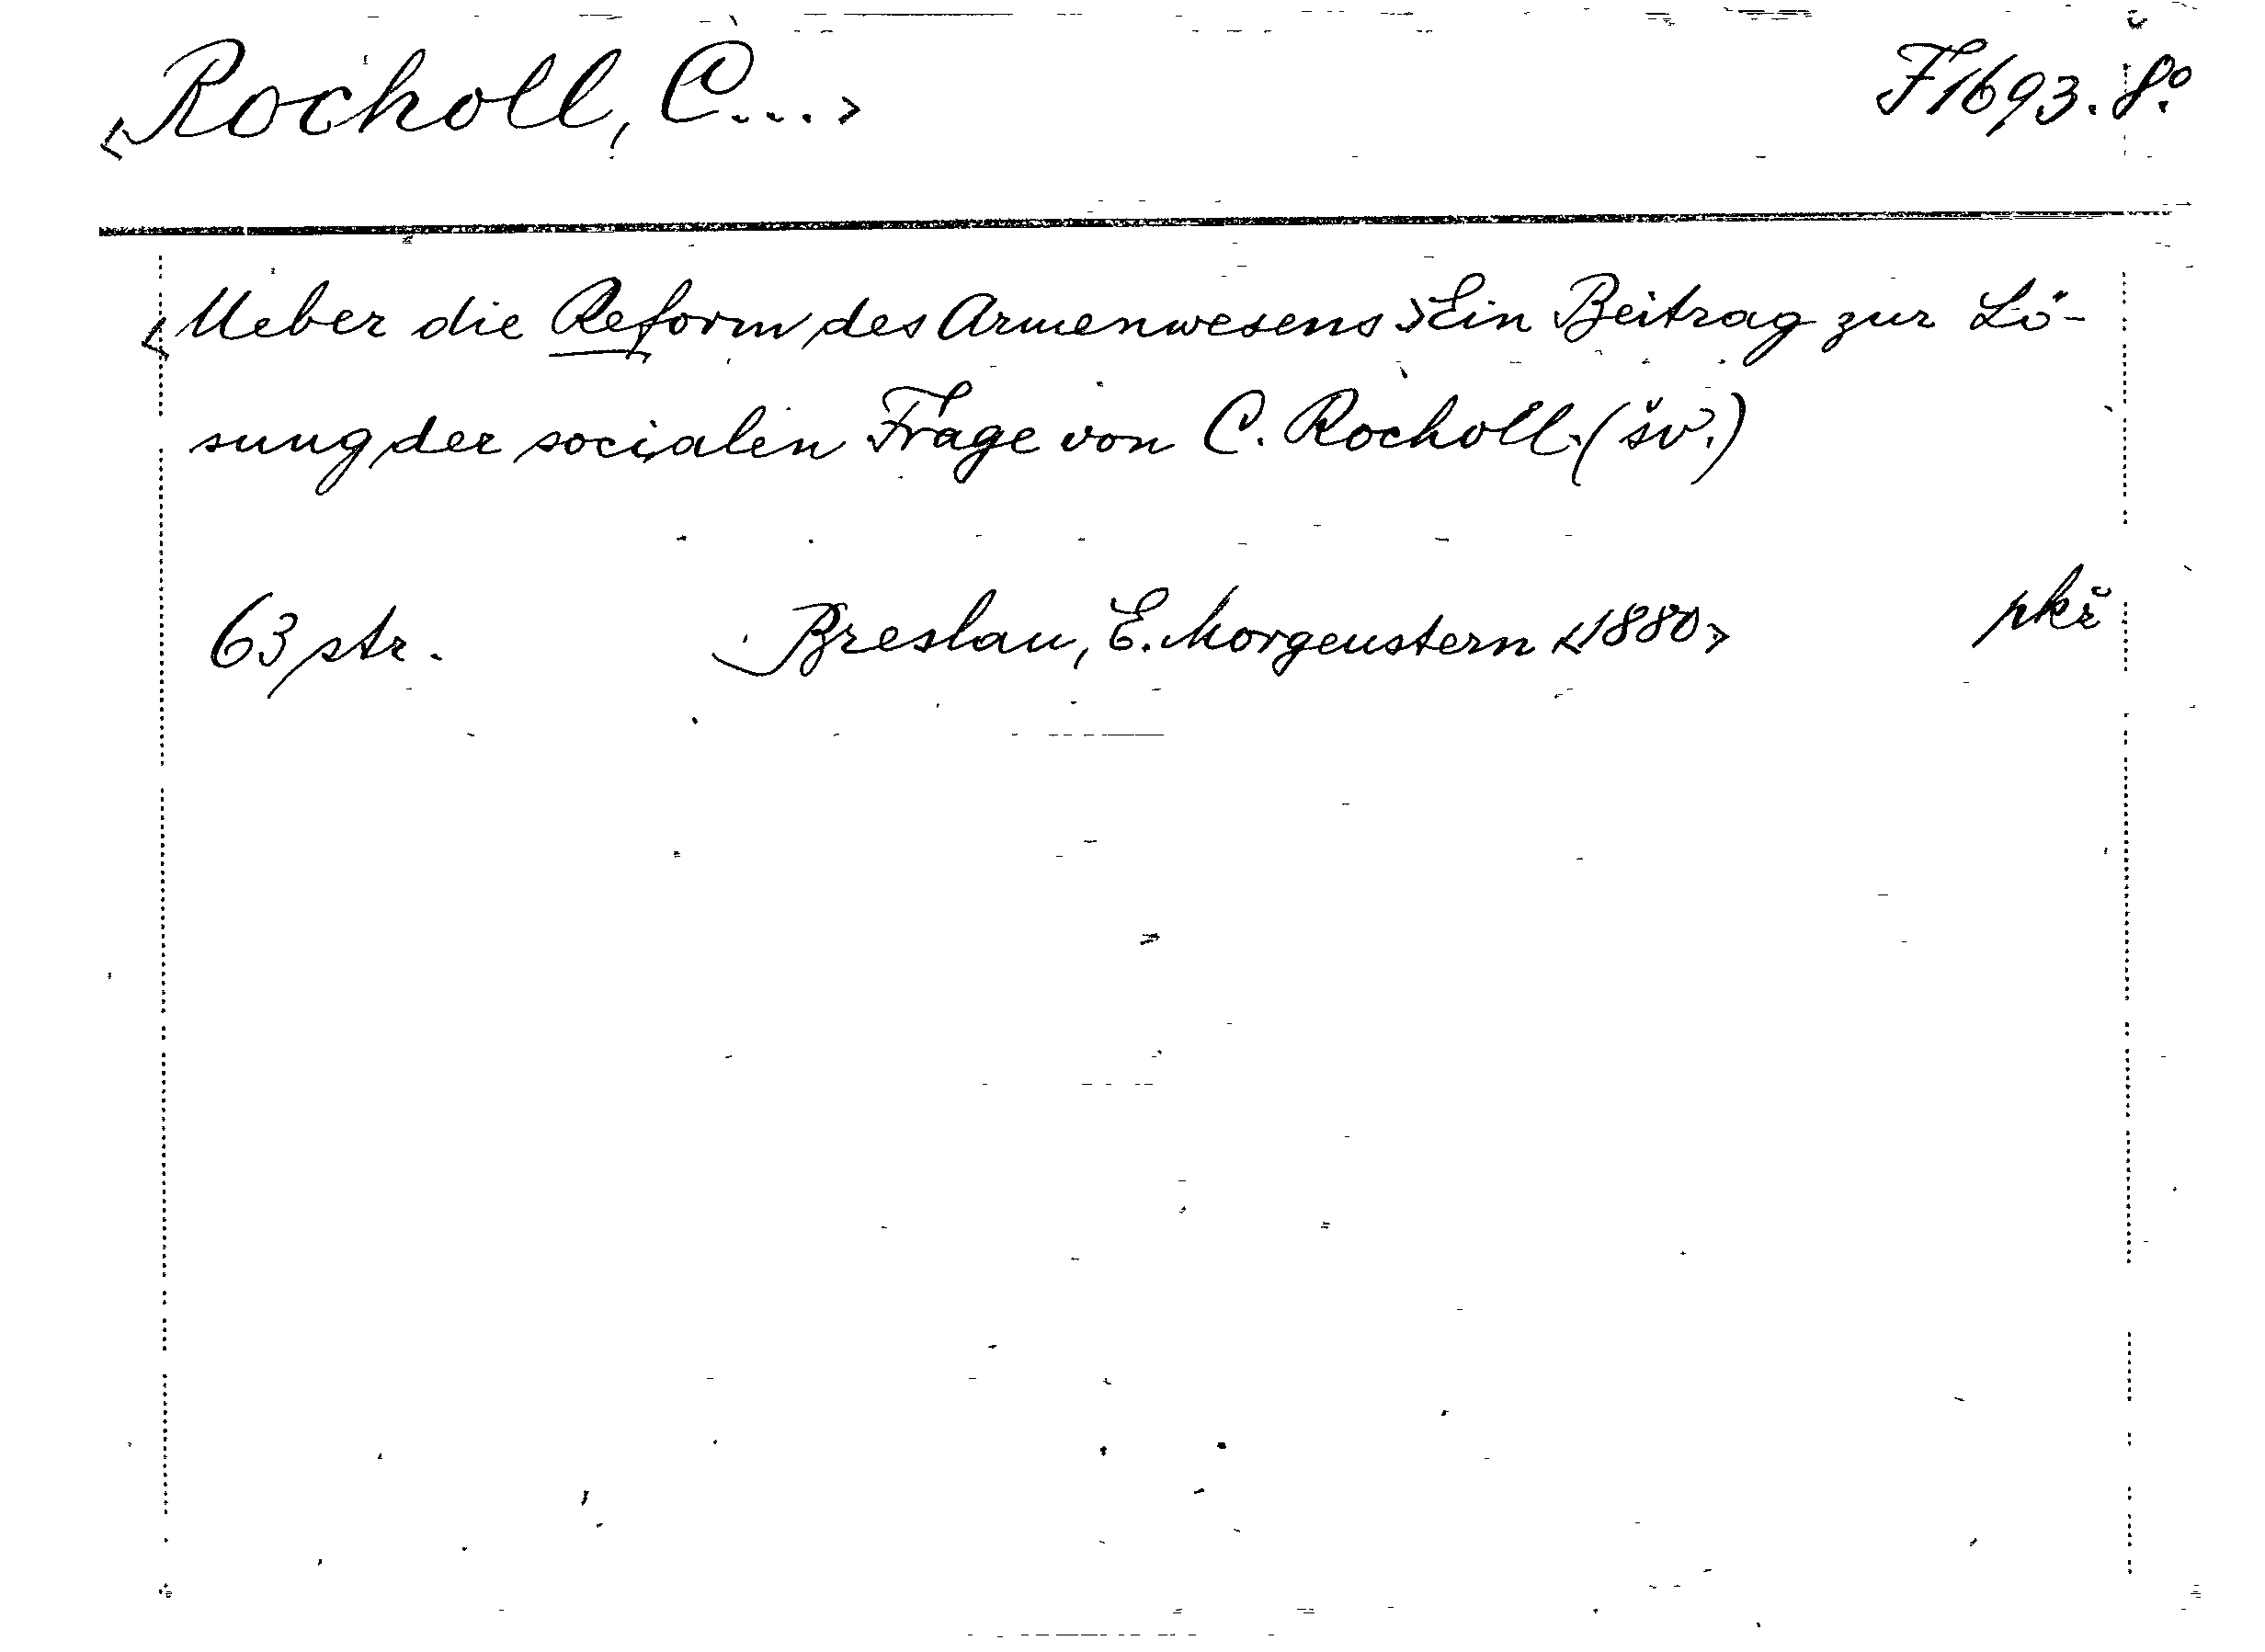 <Rocholl, C...> F1693. 8°.
<Ueber die Reform des Armenwesens.> Ein Beitrag zur Lö-
sung der socialen Frage von C. Rocholl. (šv.)
63 str. Breslau, E. Morgenstern <1880> pkř